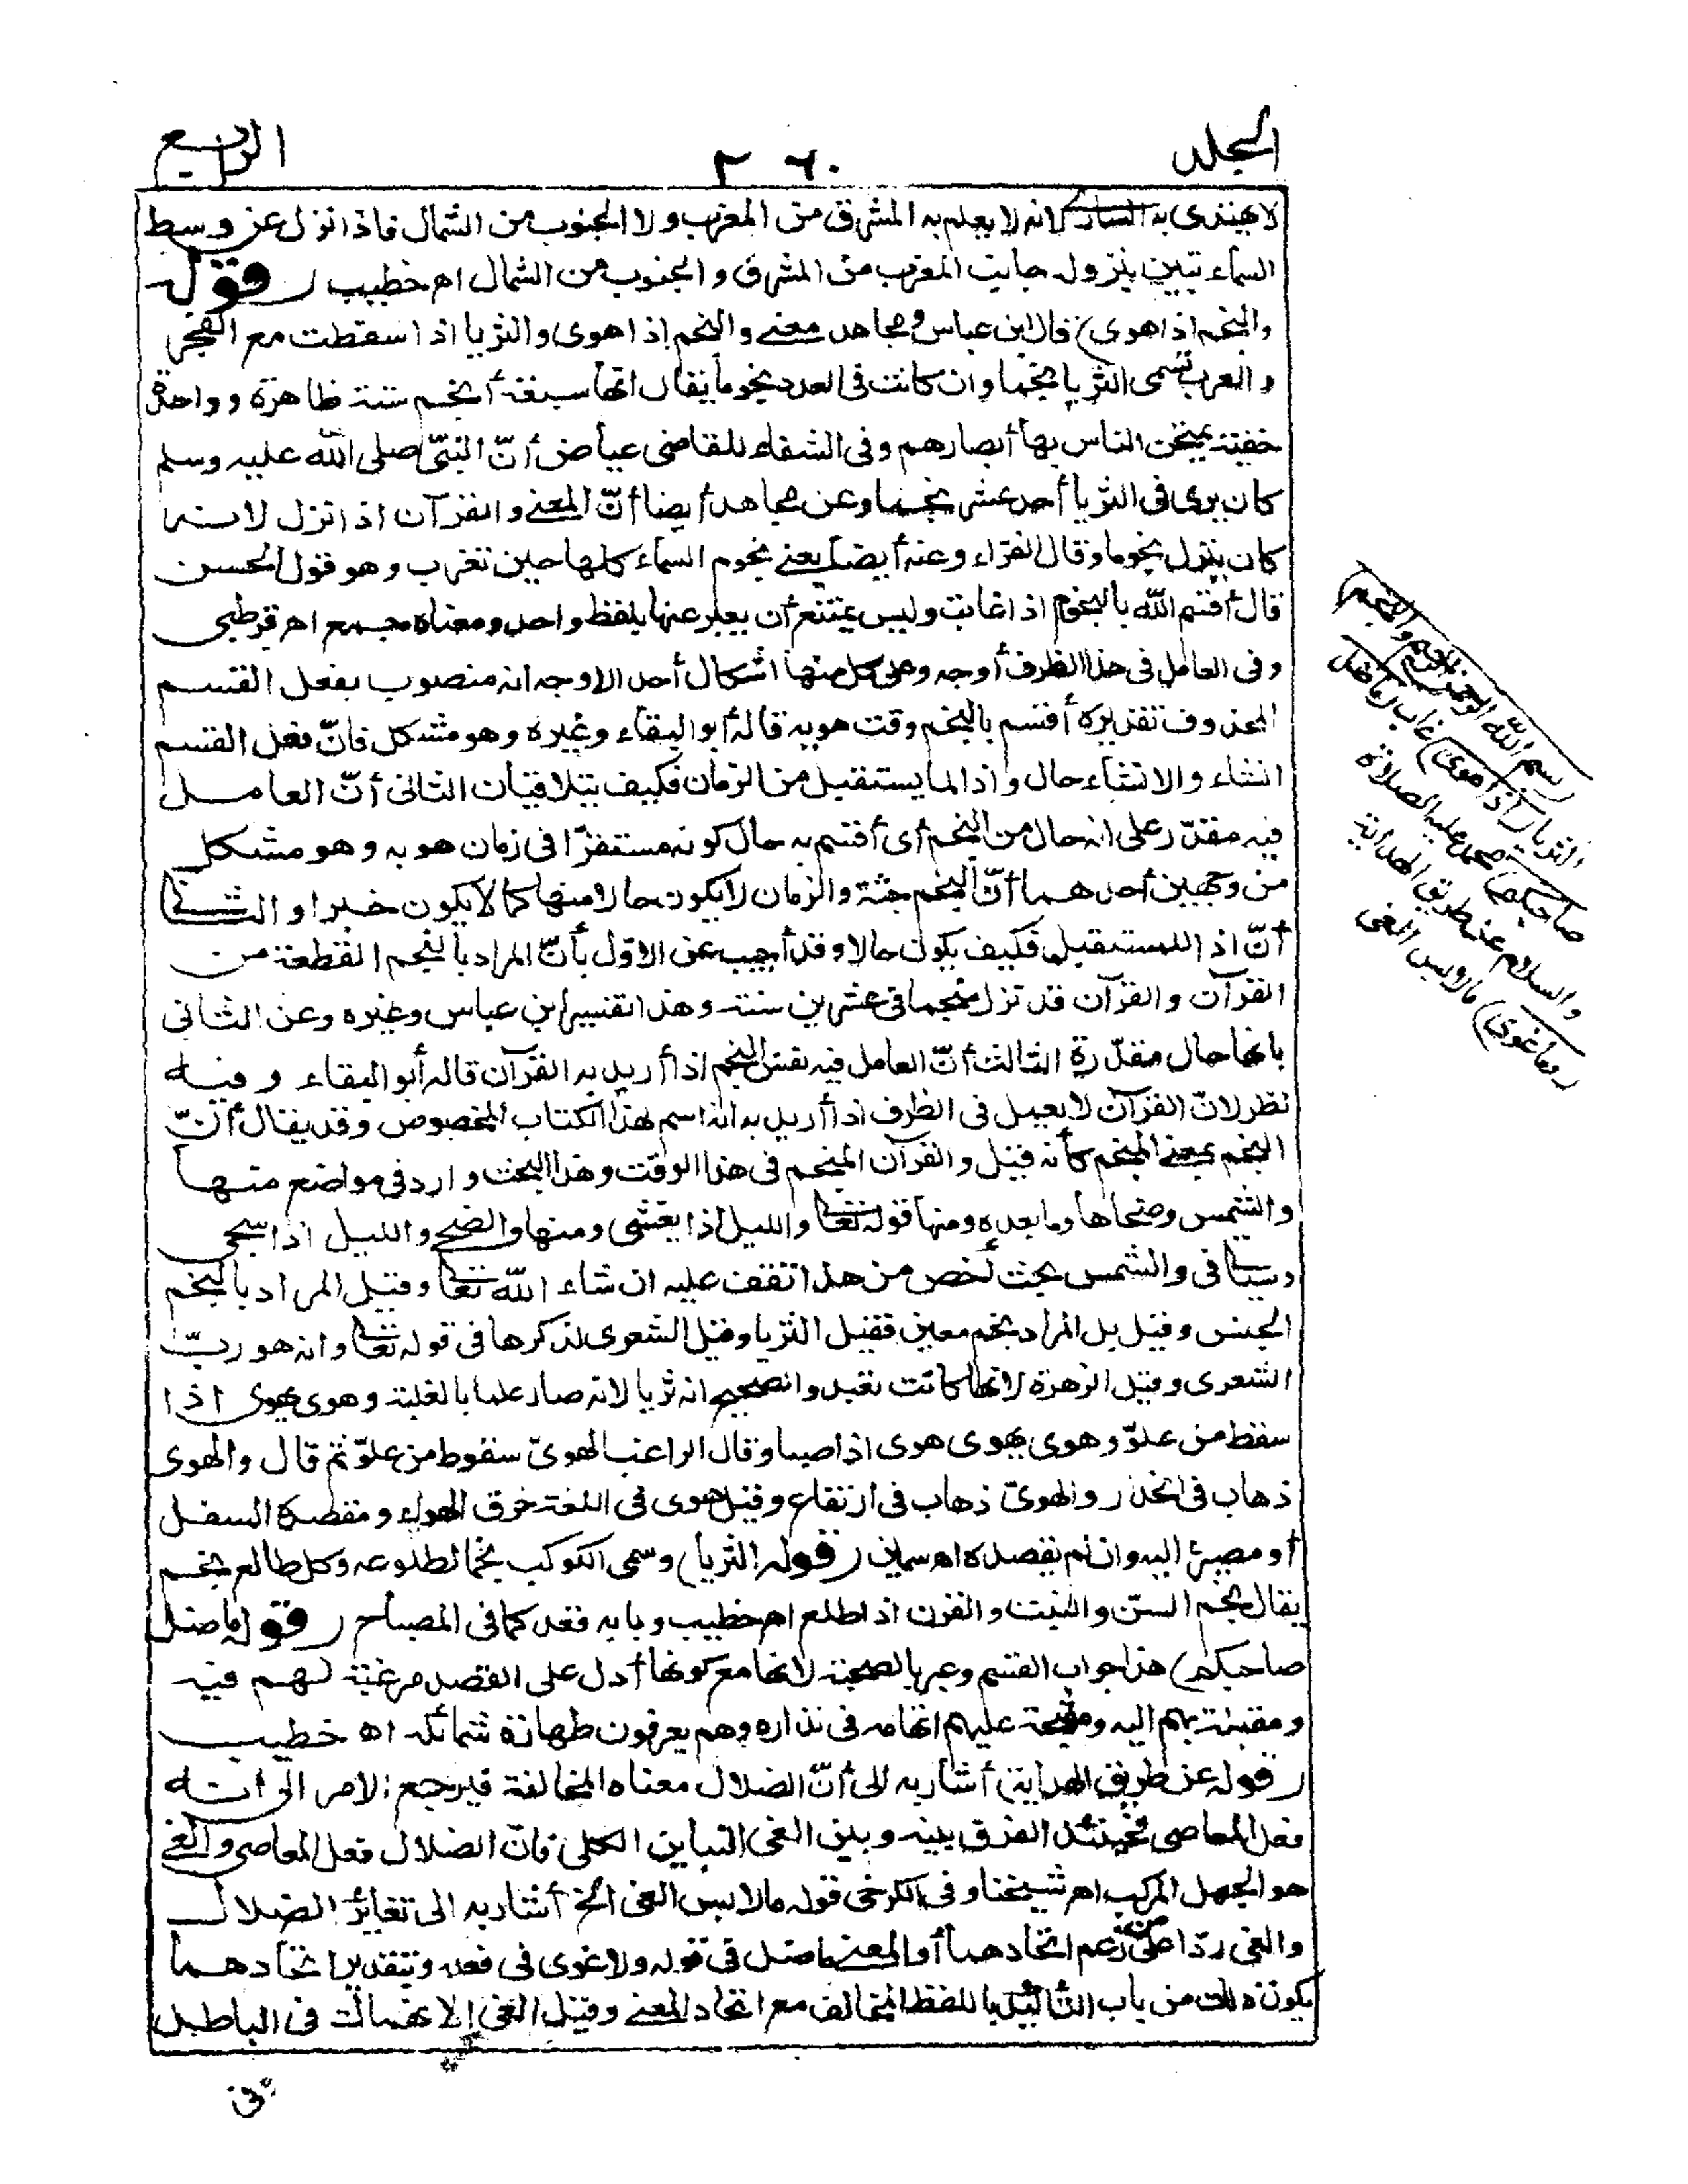 المجلد
٢٦٠
الرابع
لا يهتدى به السارى لانه لا يعلم به المشرق من المغرب ولا الجنوب من الشمال فاذا نزل عن وسط
السماء تبين بنزوله جانب المغرب من المشرق والجنوب من الشمال اه خطيب (قوله
والنجم اذا هوى) قال ابن عباس ومجاهد معنى والنجم إذا هوى والثريا اذا سقطت مع الفجر
والعرب تسمى الثريا نجما وان كانت فى العدد نجوما يقال انها سبعة أنجم ستة ظاهرة وواحدة
خفية يمتحن الناس بها أبصارهم وفى الشفاء للقاضى عياض أنّ النبىّ صلى الله عليه وسلم
كان يرى فى الثريا أحد عشر نجما وعن مجاهد أيضا أنّ المعنى والقرآن اذا نزل لانه
كان ينزل نجوما وقال الفراء وعنه أيضا يعنى نجوم السماء كلها حين تغرب وهو قول الحسن
قال أقسم الله بالنجوم اذا غابت وليس يمتنع أن يعبر عنها بلفظ واحد ومعناه جمع اه قرطبى
وفى العامل فى هذا الظرف أوجه وعلى كل منها اشكال أحد الاوجه انه منصوب بفعل القسم
المحذوف تقديره أقسم بالنجم وقت هويه قاله أبو البقاء وغيره وهو مشكل فانّ فعل القسم
انشاء والانشاء حال واذا لما يستقبل من الزمان فكيف يتلاقيان الثانى أنّ العامل
فيه مقدّر على انه حال من النجم أى أقسم به حال كونه مستقرّا فى زمان هويه وهو مشكل
من وجهين أحدهما أنّ النجم جثة والزمان لا يكون حالا منها كما لا يكون خبرا والثانى
أنّ اذا للمستقبل فكيف يكون حالا وقد أجيب عن الاوّل بأنّ المراد بالنجم القطعة من
القرآن والقرآن قد نزل منجما فى عشرين سنة وهذا تفسير ابن عباس وغيره وعن الثانى
بانها حال مقدّرة الثالث أنّ العامل فيه نفس النجم اذا أريد به القرآن قاله أبو البقاء وفيه
نظر لانّ القرآن لا يعمل فى الظرف اذا أريد به انه اسم لهذا الكتاب المخصوص وقد يقال أنّ
النجم بمعنى المنجم كأنه قيل والقرآن المنجم فى هذا الوقت وهذا البحث وارد فى مواضع منها
والشمس وضحاها وما بعده ومنها قوله تعالى والليل اذا يغشى ومنها والضحى والليل اذا سجى
وسيأتى فى والشمس بحث أخص من هذا تقف عليه ان شاء الله تعالى وقيل المراد بالنجم
الجنس وقيل بل المراد نجم معين فقيل الثريا وقيل الشعرى لذكرها فى قوله تعالى وانه هو ربّ
الشعرى وقيل الزهرة لانها كانت تعبد والصحيح انه ثريا لانه صار علما بالغلبة وهوى يهوى اذا
سقط من علوّ وهوى يهوى هوى اذا صبا وقال الراغب الهوىّ سقوط من علوّ ثم قال والهوى
ذهاب فى انحدار والهوىّ ذهاب فى ارتفاع وقيل هوى فى اللغة خرق الهواء ومقصده السفل
أو مصيره اليه وان لم يقصده اه سمين (قوله الثريا) وسمى الكوكب نجما لطلوعه وكل طالع نجم
يقال نجم السن والنبت والقرن اذا طلع اه خطيب وبابه قعد كما فى المصباح (قوله ما ضل
صاحبكم) هذا جواب القسم وعبر بالصحبة لانها مع كونها أدل على القصد مرغبة لهم فيه
ومقبلة بهم اليه ومقبحة عليهم اتهامه فى نذاره وهم يعرفون طهارة شمائله اه خطيب
(قوله عن طريق الهداية) أشار به الى أنّ الضلال معناه المخالفة فيرجع الامر الى أنه
فعل المعاصى فحينئذ الفرق بينه وبين الغى التباين الكلى فانّ الضلال فعل المعاصى والغى
هو الجهل المركب اه شيخنا وفى الكرخى قوله ما لابس الغى الخ أشار به الى تغاير الضلال
والغى ردّا على من زعم اتحادهما أو المعنى ما ضل فى قوله ولا غوى فى فعله وبتقدير اتحادهما
يكون ذلك من باب التأكيد باللفظ المخالف مع اتحاد المعنى وقيل الغى الانهماك فى الباطل
بسم الله الرحمن الرحيم والنجم
الثريا (اذا هوى) غاب (ما ضل
صاحبكم) محمد عليه الصلاة
والسلام عن طريق الهداية
(وما غوى) ما لابس الغى